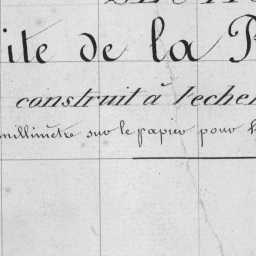 ite de la P
construit à l'echel
millimètre sur le papier pour